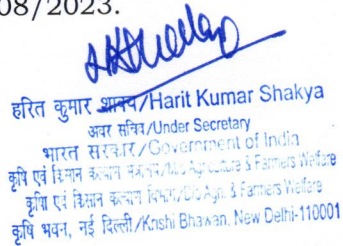 08/2023.
हरित कुमार शाक्य/Harit Kumar Shakya
अवर सचिव/Under Secretary
भारत सरकार/Government of India
कृषि एवं किसान कल्याण मंत्रालय/M/o Agriculture & Farmers Welfare
कृषि एवं किसान कल्याण विभाग/D/o Agri. & Farmers Welfare
कृषि भवन, नई दिल्ली/Krishi Bhawan, New Delhi-110001